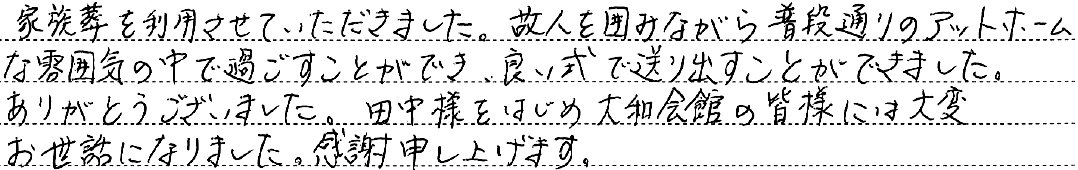 家族葬を利用させていただきました。故人を囲みながら普段通りのアットホーム
な雰囲気の中で過ごすことができ、良い式で送り出すことができました。
ありがとうございました。田中様をはじめ大和会館の皆様には大変
お世話になりました。感謝申し上げます。